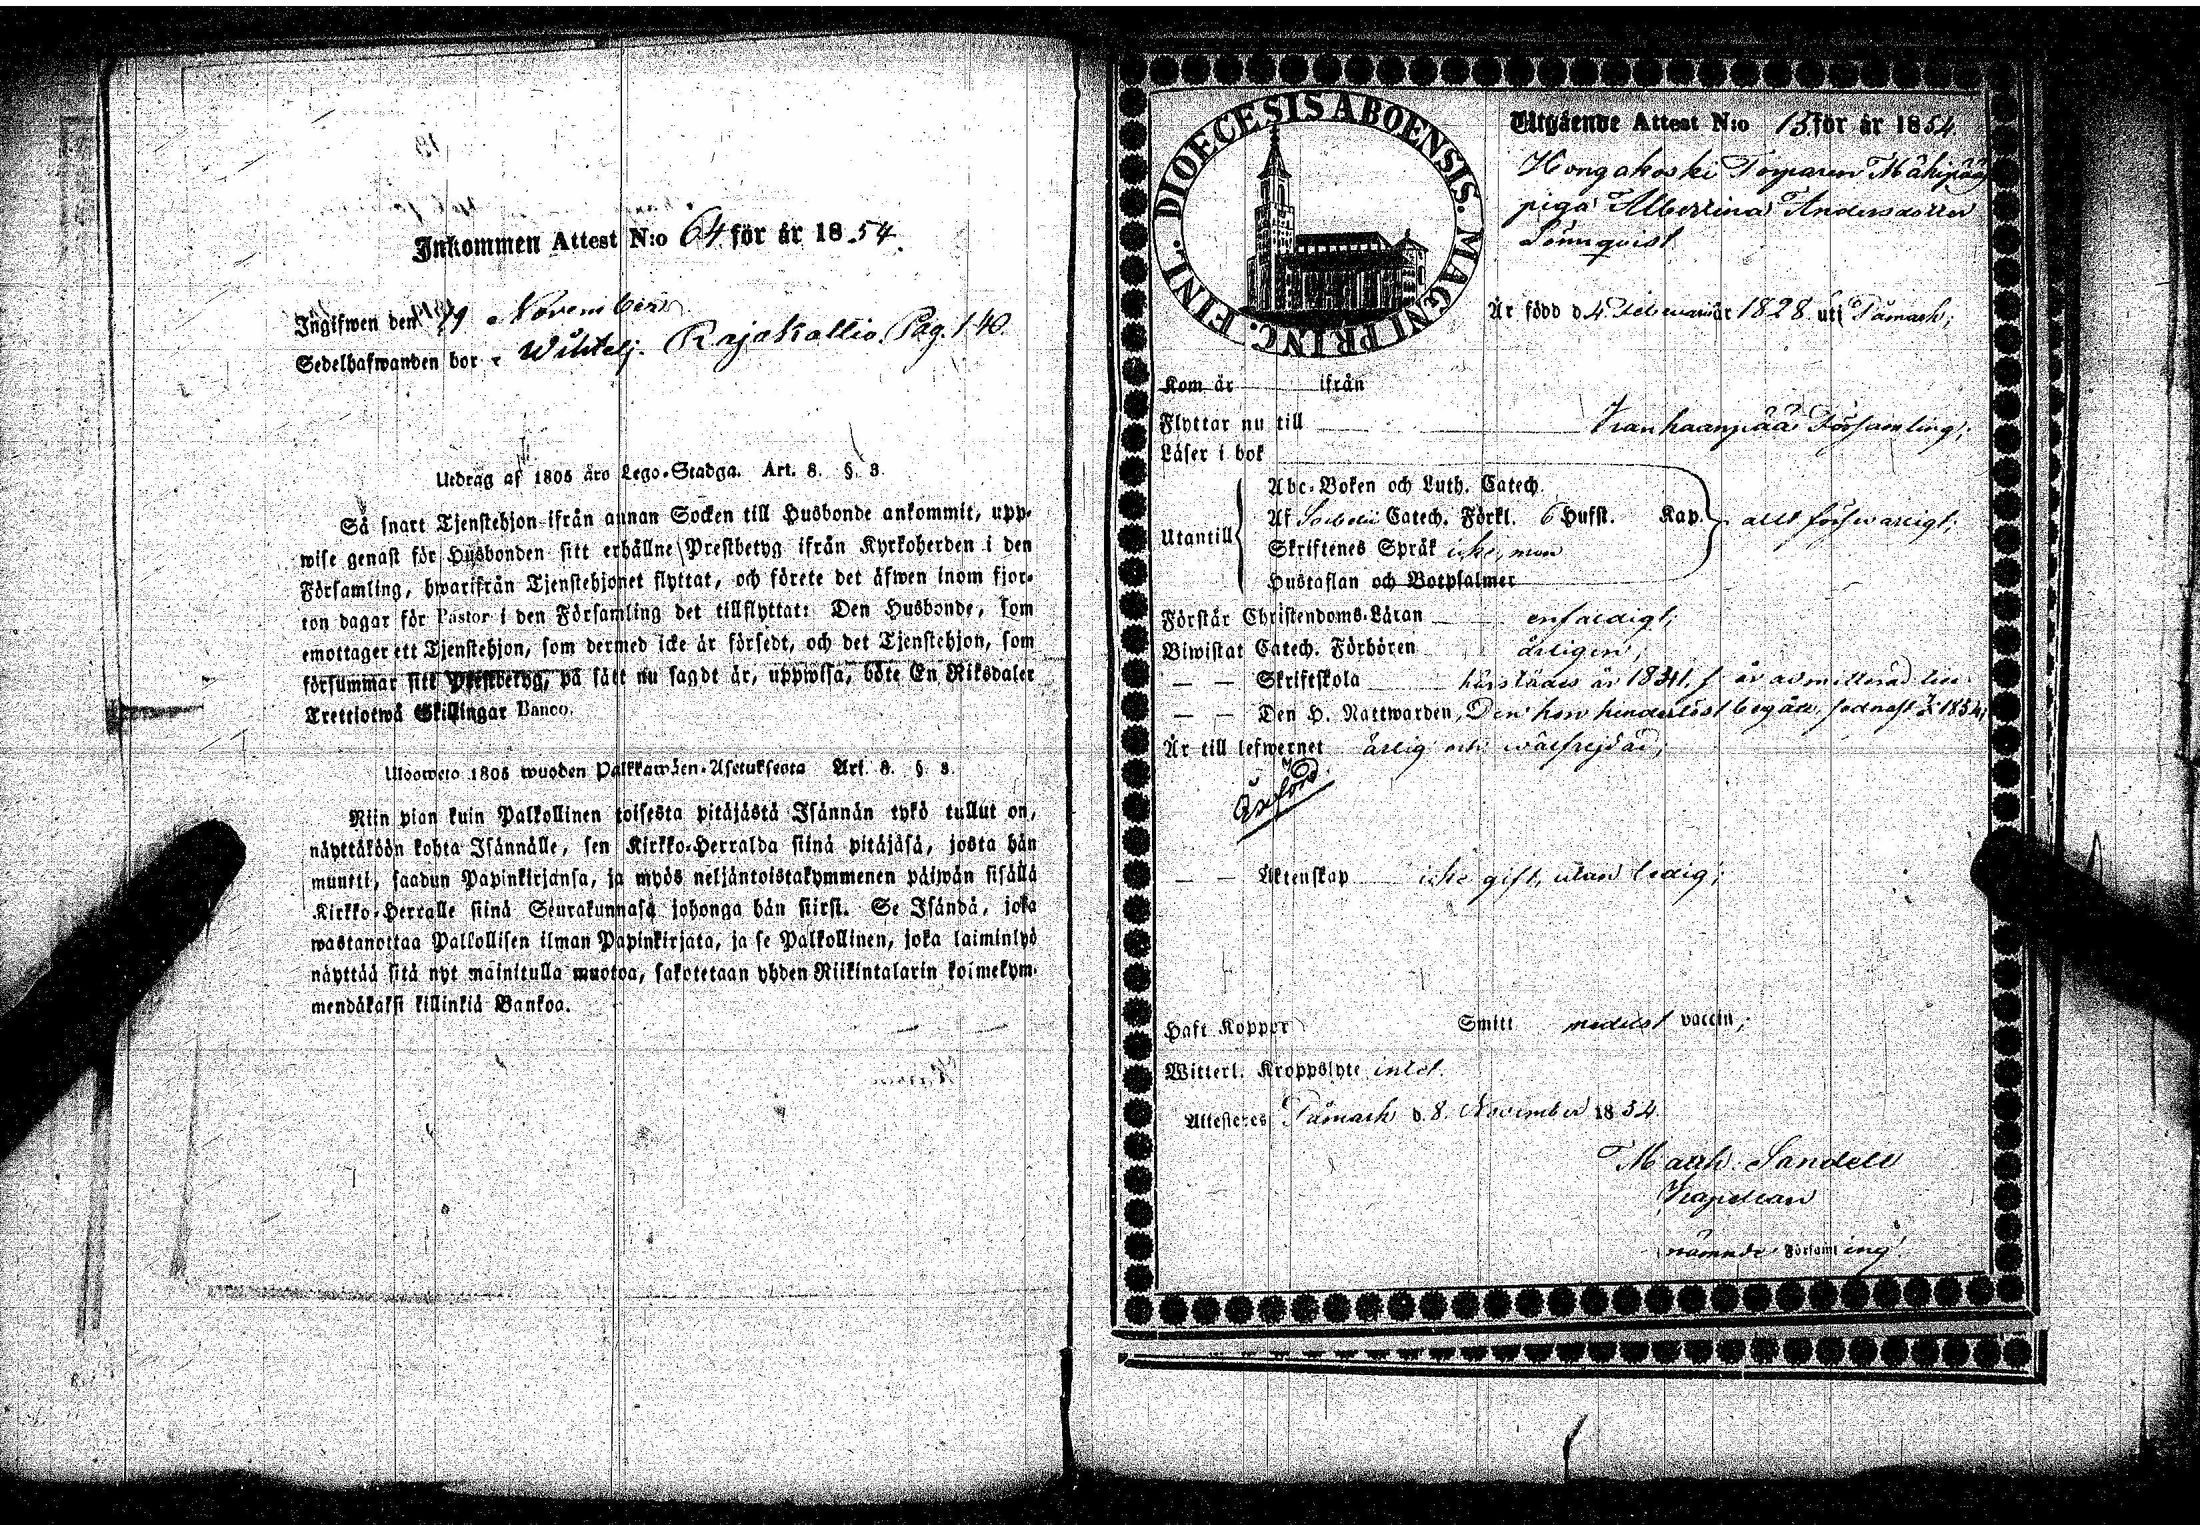 Inkommen Attest N:o 64 för år 1854.
Ingifwen den 19 November
Sedelhafwanden bor Wihtelj. Rajakallio. Pag. 140.
Utdrag af 1805 åro Lego-Stadga. Art. 8. §. 3.
Så snart Tjenstehjon ifrån annan Socken till Husbonde ankommit, upp-
wise genast för Husbonden sitt erhållne Prestbetyg ifrån Kyrkoherden i den
Församling, hwarifrån Tjenstehjonet flyttat, och förete det äfwen inom fjor-
ton dagar för Pastor i den Församling det tillflyttat: Den Husbonde, som
emottager ett Tjenstehjon, som dermed icke är försedt, och det Tjenstehjon, som
försummar sitt Prestbetyg, på sätt nu sagdt är, uppwisa, böte En Riksdaler
Trettiotwå Skillingar Banco.
Ulosweto 1805 wuoden Palkkawäen-Asetuksesta Art. 8. §. 3.
Niin pian kuin Palkollinen toisesta pitäjästä Isännän tykö tullut on,
näyttäköön kohta Isännälle, sen Kirkko-Herralda siinä pitäjäsä, josta hän
muutti, saadun Papinkirjansa, ja myös neljäntoistakymmenen päiwän sisällä
Kirkko-Herralle siinä Seurakunnasa johonga hän siirsi. Se Isändä, joka
wastanottaa Palkollisen ilman Papinkirjata, ja se Palkollinen, joka laiminlyö
näyttää sitä nyt mainitulla muotoa, sakotetaan yhden Riikintalarin kolmekym-
mendäkaksi killinkiä Bankoa.
DIOECESIS ABOENSIS. MAGNI PRINC. FINL.
Utgående Attest N:o 13 för år 1854
Hongakoski Torparen Mähipää
piga Albertina Andersdotter
Lönnqvist
Är född d 4 Februari år 1828. uti Tämark;
Kom år ifrån
Flyttar nu till Kanhaanpää Församling;
Läser i bok
Utantill
Abc-Boken och Luth. Catech.
Af Sorbelii Catech. Förkl. 6 Hufst. Kap. allt förswarligt;
Skriftenes Språk icke, men
Hustaflan och Botpsalmer
Förstår Christendoms-Läran enfaldigt;
Biwistat Catech. Förhören årligen;
— — Skriftskola härstädes år 1841. är admitterad till
— — Den H. Nattwarden, Den hon hinderlöst begått, sednast 1854;
Är till lefwernet ärlig och wälfrejdad;
— — Äktenskap icke gift, utan ledig;
Haft Koppor Smitt medelst vaccin;
Witterl. Kroppslyte intet.
Attesteres Tämark d. 8. November 1854
Matth: Sandell
Kapellan
nämnde Församling